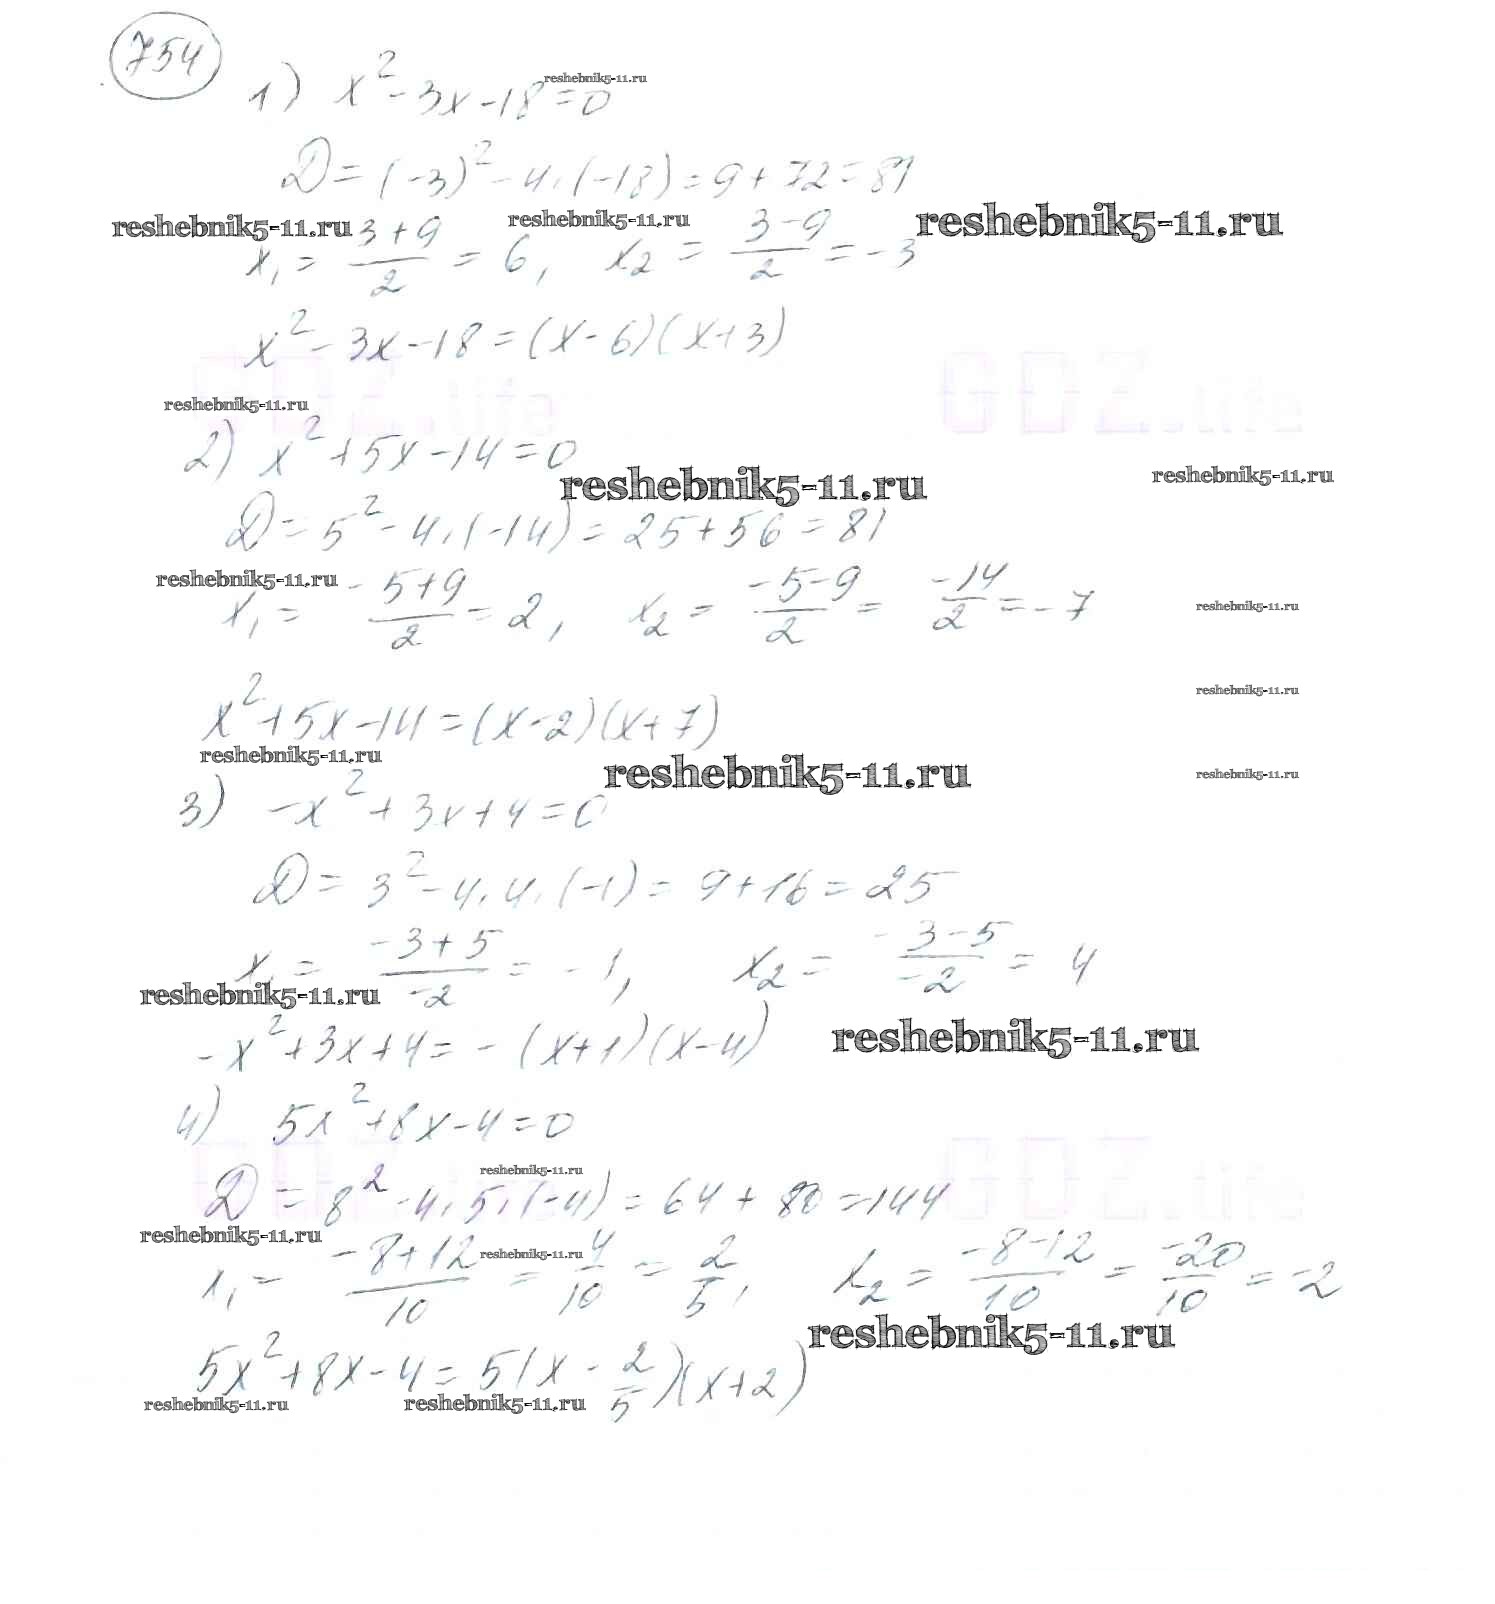 754
1) x² - 3x - 18 = 0
reshebnik5-11.ru
D = (-3)² - 4·(-18) = 9 + 72 = 81
reshebnik5-11.ru reshebnik5-11.ru reshebnik5-11.ru
x₁ = (3+9)/2 = 6, x₂ = (3-9)/2 = -3
x² - 3x - 18 = (x-6)(x+3)
GDZ.life GDZ.life
reshebnik5-11.ru
2) x² + 5x - 14 = 0
reshebnik5-11.ru reshebnik5-11.ru
D = 5² - 4·(-14) = 25 + 56 = 81
reshebnik5-11.ru
x₁ = (-5+9)/2 = 2, x₂ = (-5-9)/2 = -14/2 = -7
reshebnik5-11.ru
reshebnik5-11.ru
x² + 5x - 14 = (x-2)(x+7)
reshebnik5-11.ru reshebnik5-11.ru reshebnik5-11.ru
3) -x² + 3x + 4 = 0
D = 3² - 4·4·(-1) = 9 + 16 = 25
x₁ = (-3+5)/-2 = -1, x₂ = (-3-5)/-2 = 4
reshebnik5-11.ru
-x² + 3x + 4 = -(x+1)(x-4)
reshebnik5-11.ru
4) 5x² + 8x - 4 = 0
GDZ.life GDZ.life
reshebnik5-11.ru
D = 8² - 4·5·(-4) = 64 + 80 = 144
reshebnik5-11.ru reshebnik5-11.ru
x₁ = (-8+12)/10 = 4/10 = 2/5, x₂ = (-8-12)/10 = -20/10 = -2
reshebnik5-11.ru
5x² + 8x - 4 = 5(x - 2/5)(x+2)
reshebnik5-11.ru reshebnik5-11.ru